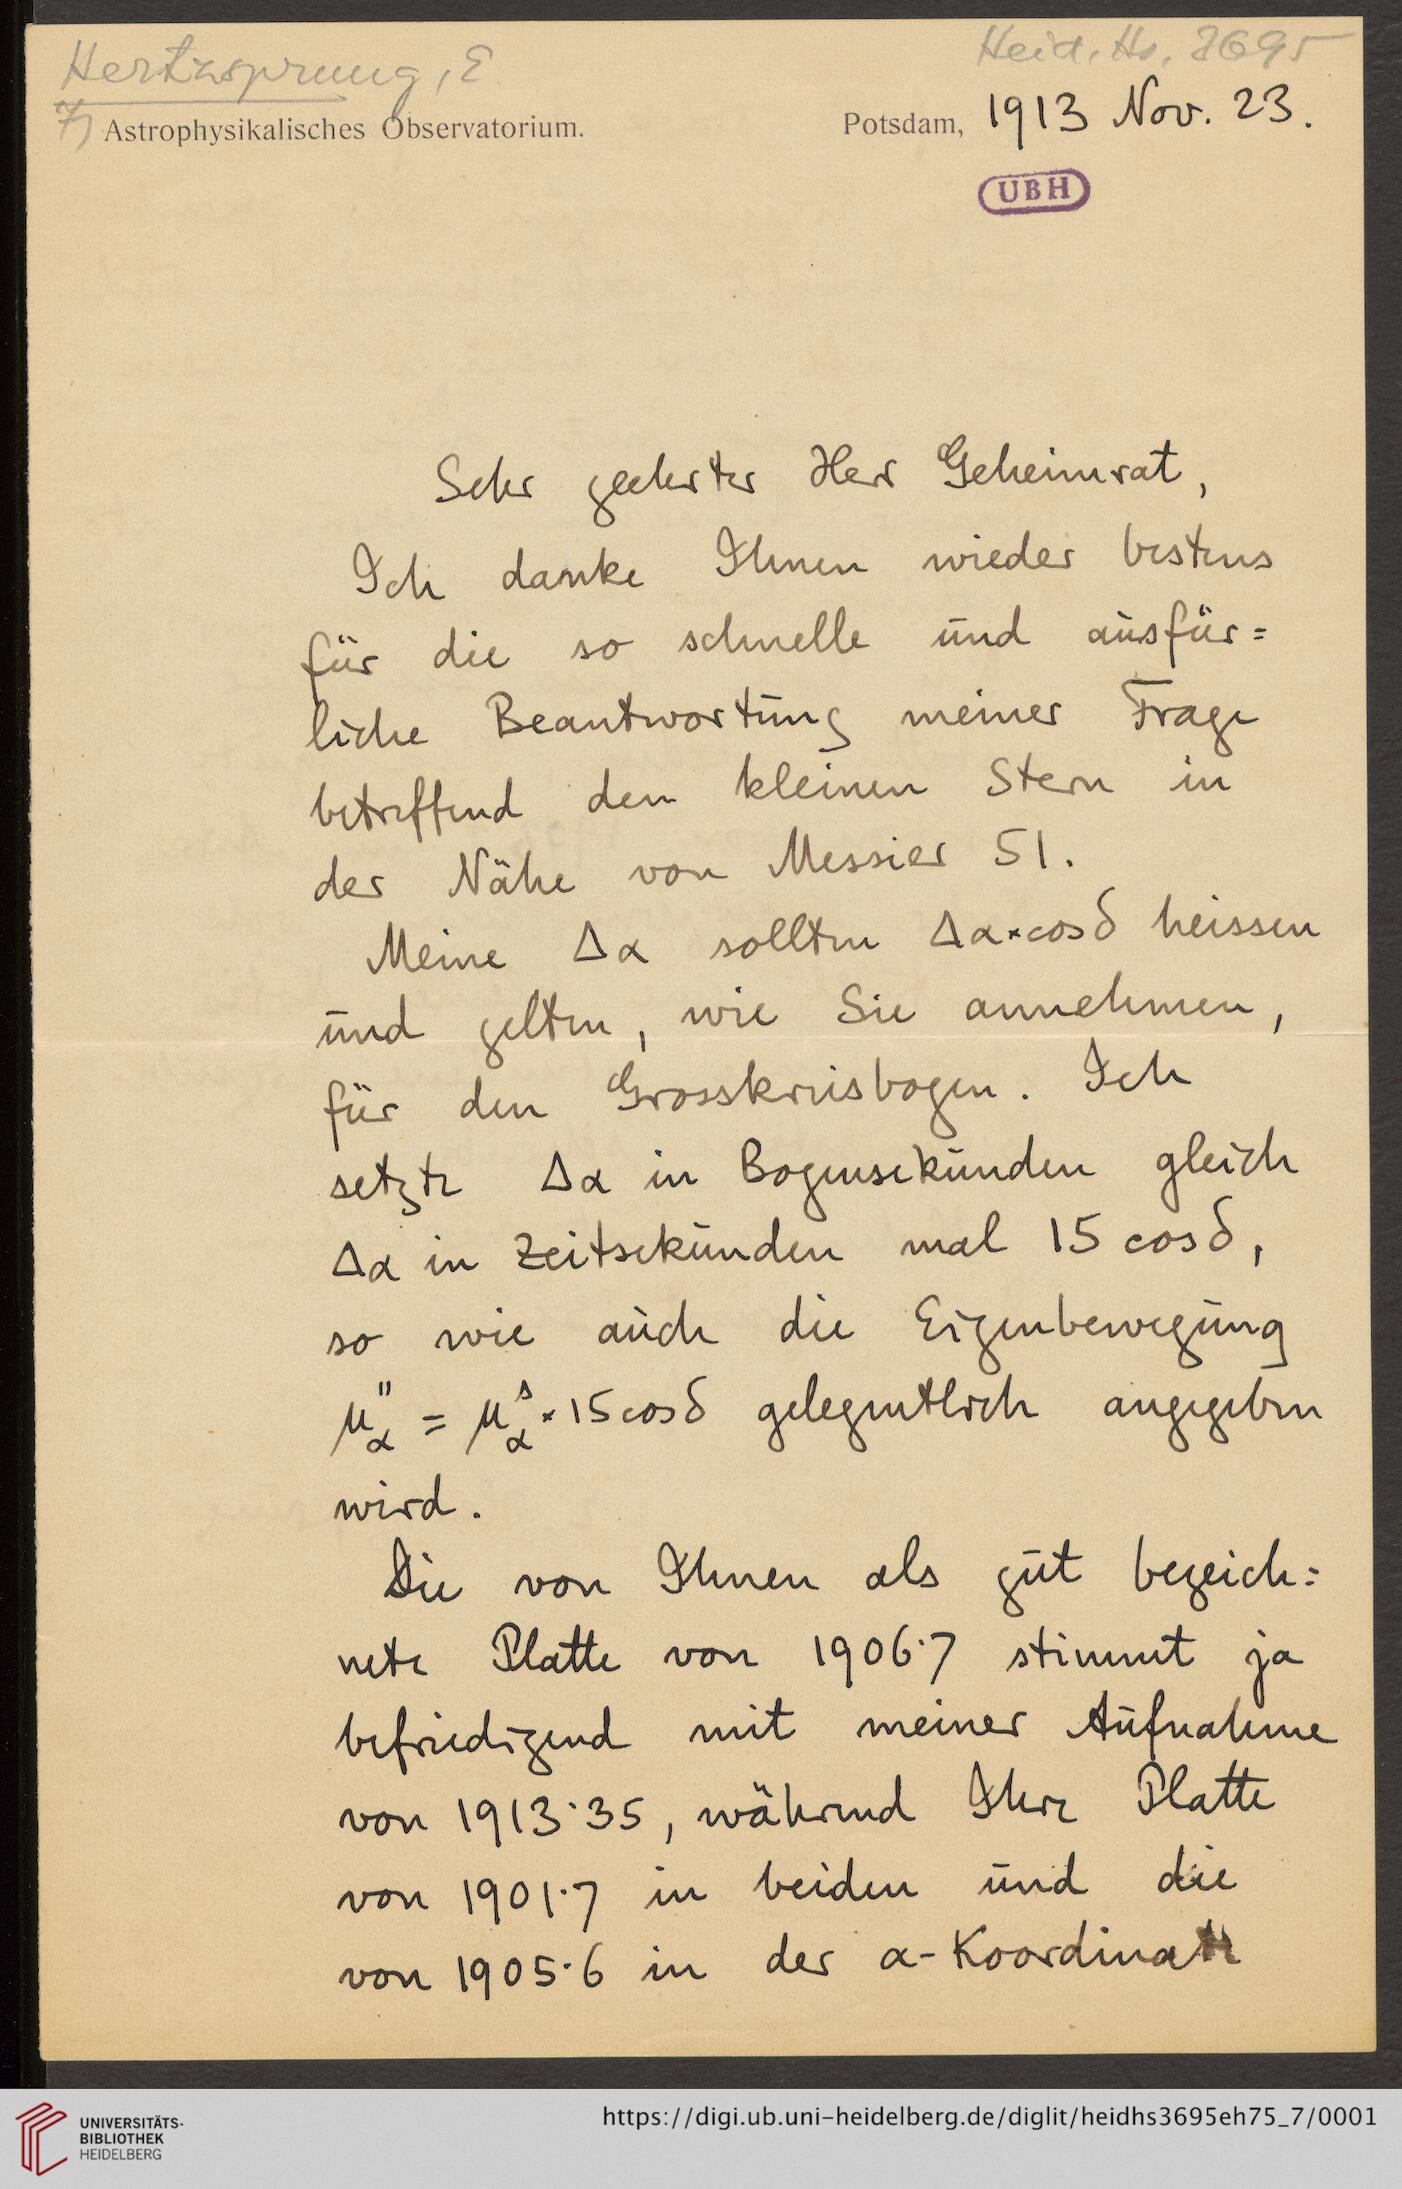 Hertzsprung, E
Heid. Hs. 3695
7) Astrophysikalisches Observatorium.
Potsdam, 1913 Nov. 23.
UBH
Sehr geehrter Herr Geheimrat,
Ich danke Ihnen wieder bestens
für die so schnelle und ausfür=
liche Beantwortung meiner Frage
betreffend den kleinen Stern in
der Nähe von Messier 51.
Meine Δα sollten Δα×cosδ heissen
und gelten, wie Sie annehmen,
für den Grosskreisbogen. Ich
setzte Δα in Bogensekunden gleich
Δα in Zeitsekunden mal 15 cosδ,
so wie auch die Eigenbewegung
μ″α = μˢα × 15 cosδ gelegentlich angegeben
wird.
Die von Ihnen als gut bezeich=
nete Platte von 1906·7 stimmt ja
befriedigend mit meiner Aufnahme
von 1913·35, während Ihre Platte
von 1901·7 in beiden und die
von 1905·6 in der α-Koordinate
UNIVERSITÄTS-
BIBLIOTHEK
HEIDELBERG
https://digi.ub.uni-heidelberg.de/diglit/heidhs3695eh75_7/0001